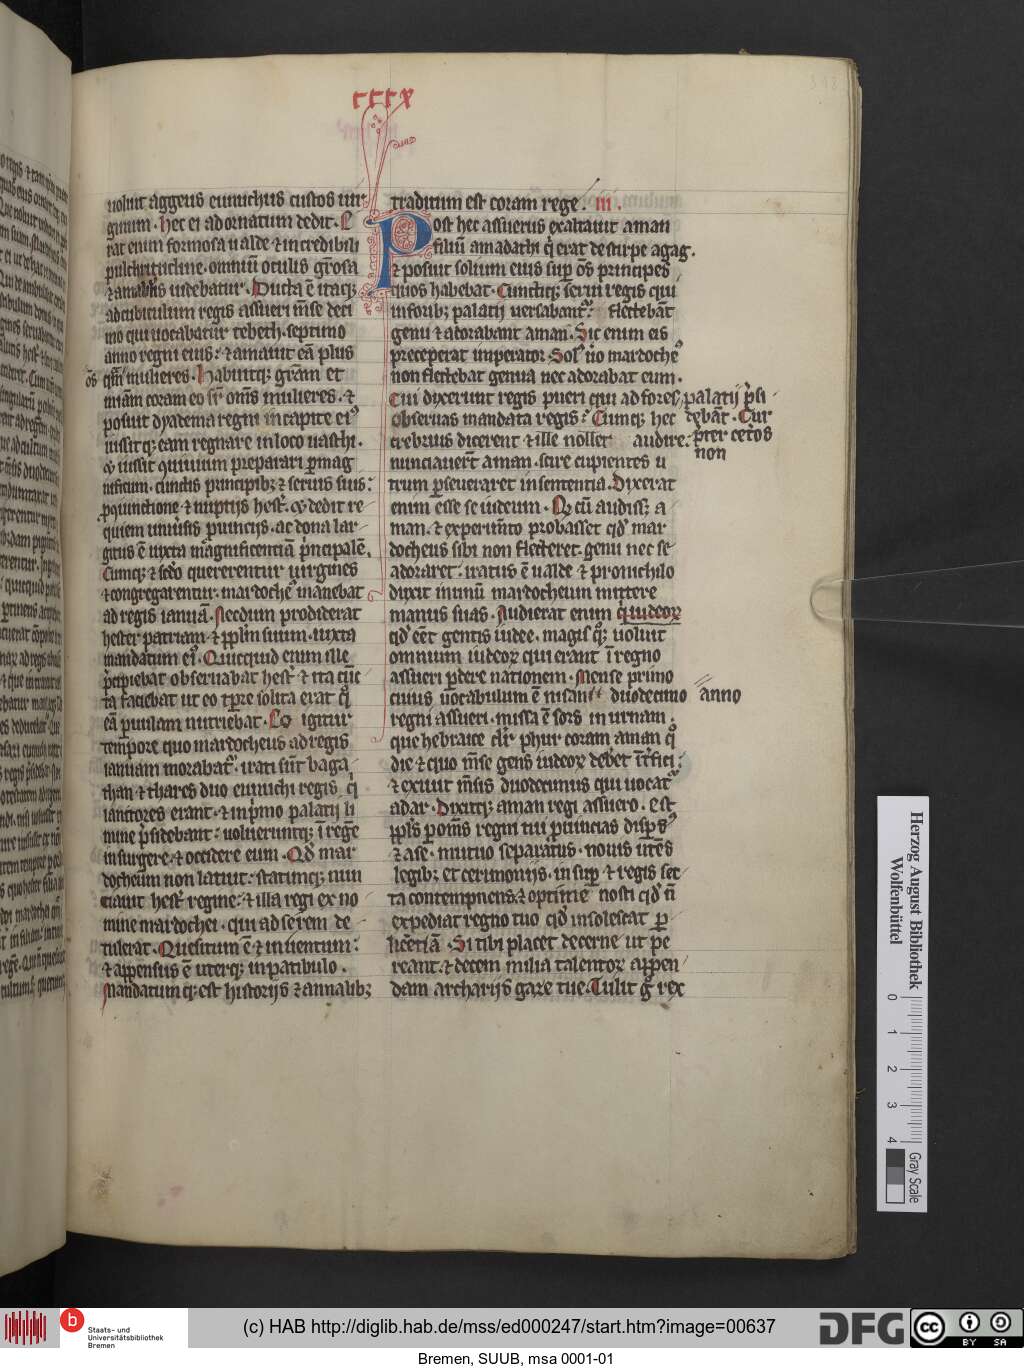 uoluit aggeus eunuchus custos uir
ginum . hec ei ad ornatum dedit . E
rat enim formosa ualde ⁊ incredibili
pulchritudine . omniū oculis gr̄osa
⁊ amabilis uidebatur . Ducta ē itaqꝫ
ad cubiculum regis assueri m̄se deci
mo qui uocabatur tebeth . septimo
anno regni eius : ⁊ amauit eā plus
ōs qm̄ mulieres . Habuitqꝫ gr̄am et
posuit dyadema regni in capite ei᾽
iussitqꝫ eam regnare in loco uasthi .
nificum . cunctis principibꝫ ⁊ seruis suis :
quiem uniūsis ꝓuincijs . ac dona lar
gitus ē iuxta magnificentiā p̄ncipalē .
Cumqꝫ ⁊ sc̄do quererentur uirgines
⁊ congregarentur . mardoche᾽ manebat
ad regis ianuā . Necdum prodiderat
hester patriam ⁊ ppl̄m suum . iuxta
mandatum ei᾽ . Quicquid enim ille
p̄cipiebat obseruabat hest᾽ ⁊ ita cūc
ta faciebat ut eo tp̄re solita erat qͦ
eā puulam nutriebat . Eo igitur
tempore quo mardocheus ad regis
ianuam morabat᾽ . irati sūt baga
than ⁊ thares duo eunuchi regis qͥ
ianitores erant . ⁊ in pͥmo palatij li
mine p̄sidebant : uolueruntqꝫ ī regē
insurgere . ⁊ occidere eum . Qd̄ mar
docheum non latuit : statimqꝫ nun
ciauit hest᾽ regine : ⁊ illa regi ex no
mine mardochei . qui ad se rem de
tulerat . Quesitum ē ⁊ inuentum :
⁊ appensus ē uterqꝫ in patibulo .
Mandatumqꝫ est historijs ⁊ annalibꝫ
cccx
traditum est coram rege . iii .
Post hec assuerus exaltauit aman
filiū amadathi qͥ erat de stirpe agag .
⁊ posuit solium eius suꝑ ōs principes
quos habebat . Cunctiqꝫ serui regis qui
in foribꝫ palatij uersabant᾽ : flectebāt
genu ⁊ adorabant aman . Sic enim eis
preceperat imperator . Sol᾽ ūo mardoche᾽
non flectebat genua nec adorabat eum .
Cui dixerunt regis pueri qui ad fores palatij p̄si
obseruas mandata regis : Cumqꝫ hec debāt . Cur
crebrius dicerent ⁊ ille nollet audire : p̄ter cet̄os
non
nunciauer̄t aman . scire cupientes u
trum ꝑseueraret in sententia . Dixerat
enim esse se iudeum . Qd̄ cū audiss᾽ a
man . ⁊ experim̄to probasset qd̄ mar
docheus sibi non flecteret genu nec se
adoraret : iratus ē ualde ⁊ pro nichilo
duxit in unū mardocheum mittere
manus suas . Audierat enim qͥ iudeoꝝ
qd̄ eēt gentis iudee . magisqꝫ uoluit
omnium iudeoꝝ qui erant ī regno
assueri ꝑdere nationem . Mense primo
cuius uocabulum ē nisan duodecimo anno
regni assueri . missa ē sors in urnam .
que hebraice dr̄ phur coram aman qͦ
die ⁊ quo m̄se gens iudeoꝝ debet īt̄fici :
⁊ exiuit m̄sis duodecimus qui uocat᾽
adar . Dixitqꝫ aman regi assuero . Est
ppl̄s ꝑ om̄s regni tui ꝓuincias disꝑs᾽
⁊ a se . mutuo separatus . nouis utēs
legibꝫ et cerimonijs . insuꝑ ⁊ regis sci
ta contempnens . ⁊ optime nosti qd̄ n̄
expediat regno tuo qd̄ insolescat ꝑ
licētiā . Si tibi placet decerne ut pe
reant . ⁊ decem milia talentoꝝ appen
dam archarijs gaze tue . Tulit gͦ rex
Herzog August Bibliothek
Wolfenbüttel
0 1 2 3 4
Gray Scale
HAB
b
Staats- und
Universitätsbibliothek
Bremen
(c) HAB http://diglib.hab.de/mss/ed000247/start.htm?image=00637
DFG
cc BY SA
Bremen, SUUB, msa 0001-01